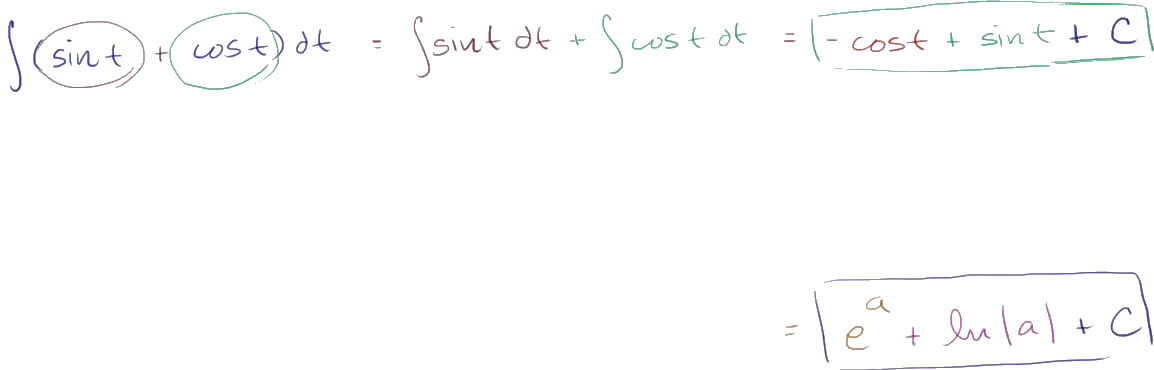 ∫(sin t + cos t) dt = ∫sin t dt + ∫cos t dt = -cos t + sin t + C
= e^a + ln|a| + C